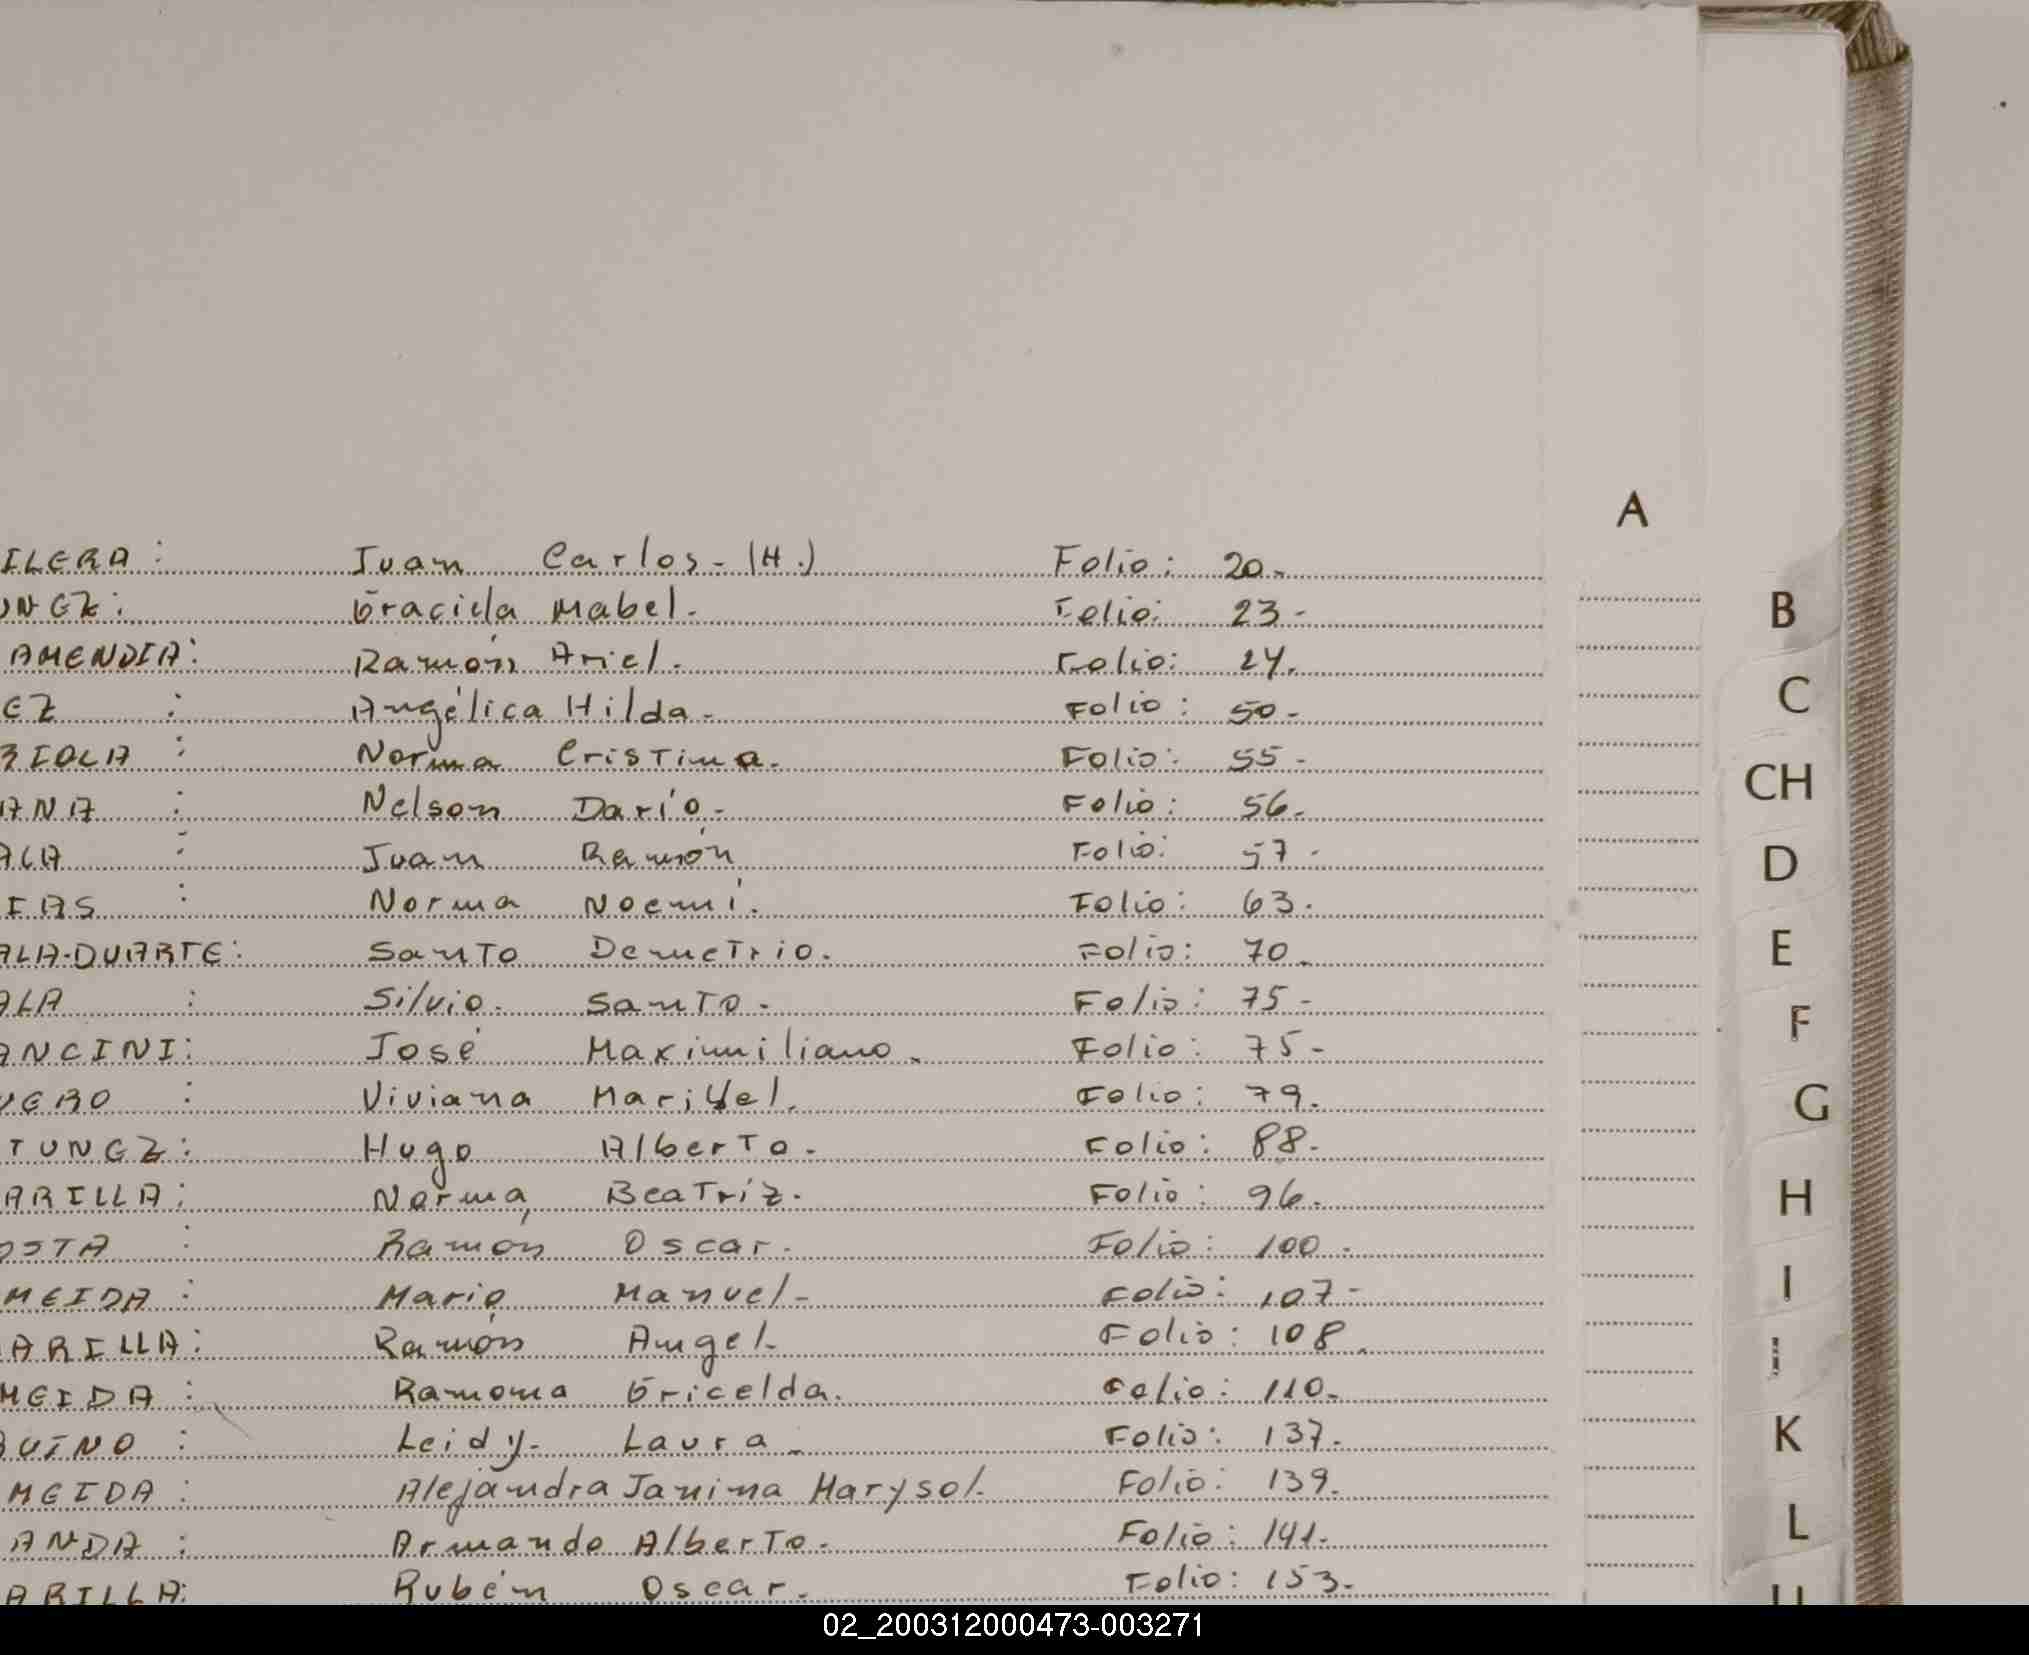 A
ILERA: Juan Carlos-(H.) Folio: 20-
UNEZ: Graciela Mabel. Folio: 23-
AMENDIA: Ramón Ariel. Folio: 24.
EZ : Angélica Hilda- Folio: 50-
RIOLA : Norma Cristina. Folio: 55-
ANA : Nelson Darío.- Folio: 56.
ALA : Juan Ramón Folio: 57-
IAS : Norma Noemí. Folio: 63.
ALA-DUARTE: Santo Demetrio. Folio: 70.
ALA : Silvio. Santo- Folio: 75-
ANCINI: José Maximiliano. Folio: 75-
VERO : Viviana Maribel. Folio: 79.
TUNEZ: Hugo Alberto- Folio: 88-
ARILLA: Norma Beatríz. Folio: 96.
OSTA : Ramón Oscar. Folio: 100.
MEIDA : Mario Manuel- Folio: 107-
ARILLA: Ramón Angel- Folio: 108.
MEIDA : Ramona Gricelda. Folio: 110.
QUINO : Leidy- Laura- Folio: 137.
MEIDA : Alejandra Janina Marysol. Folio: 139.
ANDA : Armando Alberto- Folio: 141-
ARILLA: Rubén Oscar. Folio: 153-
B
C
CH
D
E
F
G
H
I
K
L
02_200312000473-003271